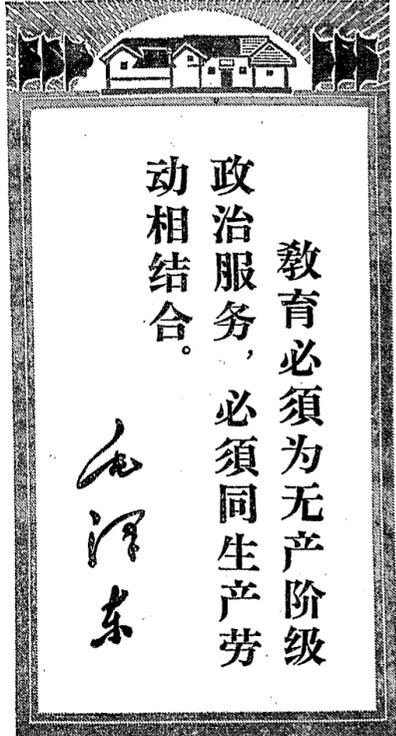 教育必须为无产阶级
政治服务，必须同生产劳
动相结合。
毛泽东